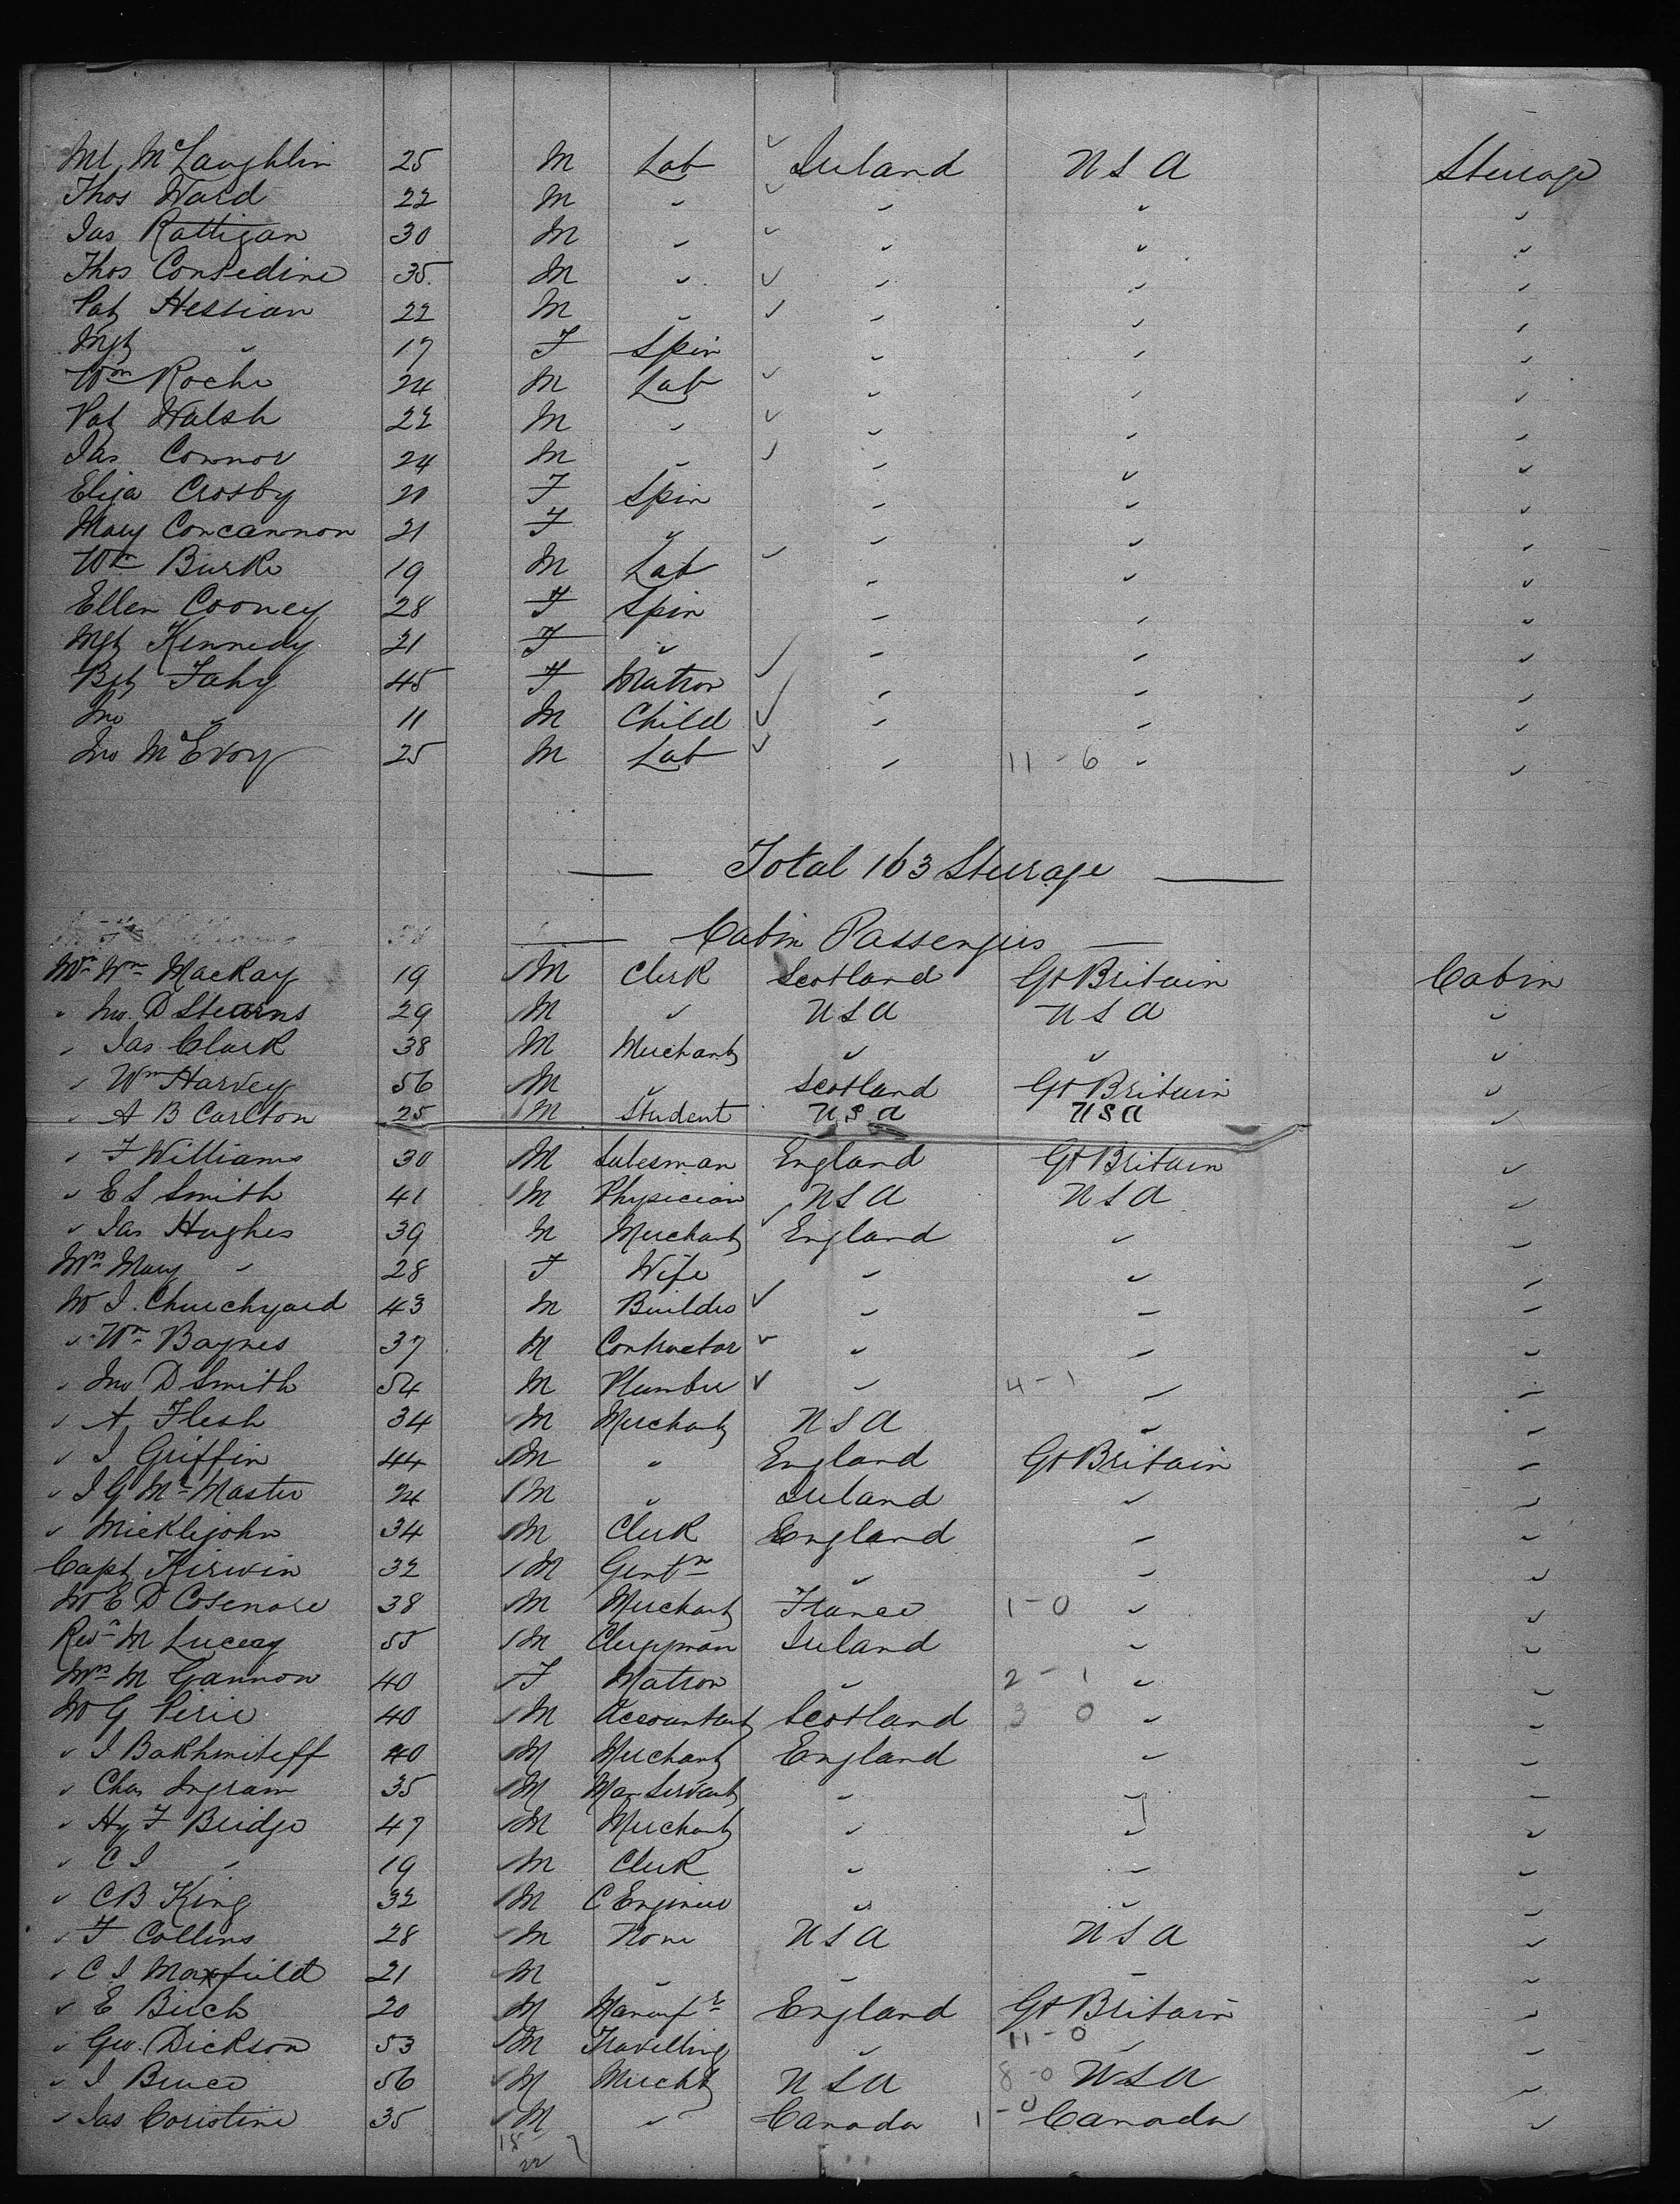 Ml McLaughlin 25 M Lab Ireland USA Steerage
Thos Ward 22 M " " " "
Jas Rattigan 30 M " " " "
Thos Considine 35 M " " " "
Pat Hession 22 M " " " "
Mgt " 17 F Spin " " "
Wm Roche 24 M Lab " " "
Pat Walsh 22 M " " " "
Jas Connor 24 M " " " "
Eliza Crosby 21 F Spin " " "
Mary Concannon 21 F " " " "
Wm Burke 19 M Lab " " "
Ellen Cooney 28 F Spin " " "
Mgt Kennedy 21 F " " " "
Bgt Fahy 45 F Matron " " "
Jno " 11 M Child " " "
Jno McEvoy 25 M Lab " 11-6 " "
Total 163 Steerage
Cabin Passengers
Mr Wm Mackay 19 M Clerk Scotland Gt Britain Cabin
" Jno. D Stearns 29 M " USA USA "
" Jas Clark 38 M Merchant " " "
" Wm Harvey 56 M " Scotland Gt Britain "
" A B Carlton 25 M Student USA USA "
" F Williams 30 M Salesman England Gt Britain "
" E S Smith 41 M Physician USA USA "
" Jas Hughes 39 M Merchant England " "
Mrs Mary " 28 F Wife " " "
Mr J. Churchyard 43 M Builder " " "
" Wm Baynes 37 M Contractor " " "
" Jno D Smith 54 M Plumber " 4-1 " "
" A Flesh 34 M Merchant USA " "
" J Griffin 44 M " England Gt Britain "
" J G McMaster 24 M " Ireland " "
" Micklejohn 34 M Clerk England " "
Capt Kirwin 32 M Gentn " " "
Mr E D Cosenare 38 M Merchant France 1-0 " "
Revd M Lucey 55 M Clergyman Ireland " "
Mrs M Gannon 40 F Matron " 2-1 " "
Mr G Pirie 40 M Accountant Scotland 3 0 " "
" J Bakhmiteff 40 M Merchant England " "
" Chas Ingram 35 M Man Servant " " "
" Hy F Bridge 47 M Merchant " " "
" C J " 19 M Clerk " " "
" C B King 32 M C Engineer " " "
" F Collins 28 M None USA USA "
" C J Maxfield 21 M " " " "
" E Birch 20 M Manufr England Gt Britain "
" Geo. Dickson 53 M Travelling " 11-0 " "
" J Bruce 56 M Mercht USA 8-0 USA "
" Jas Coristine 35 M " Canada 1-0 Canada "
18
22